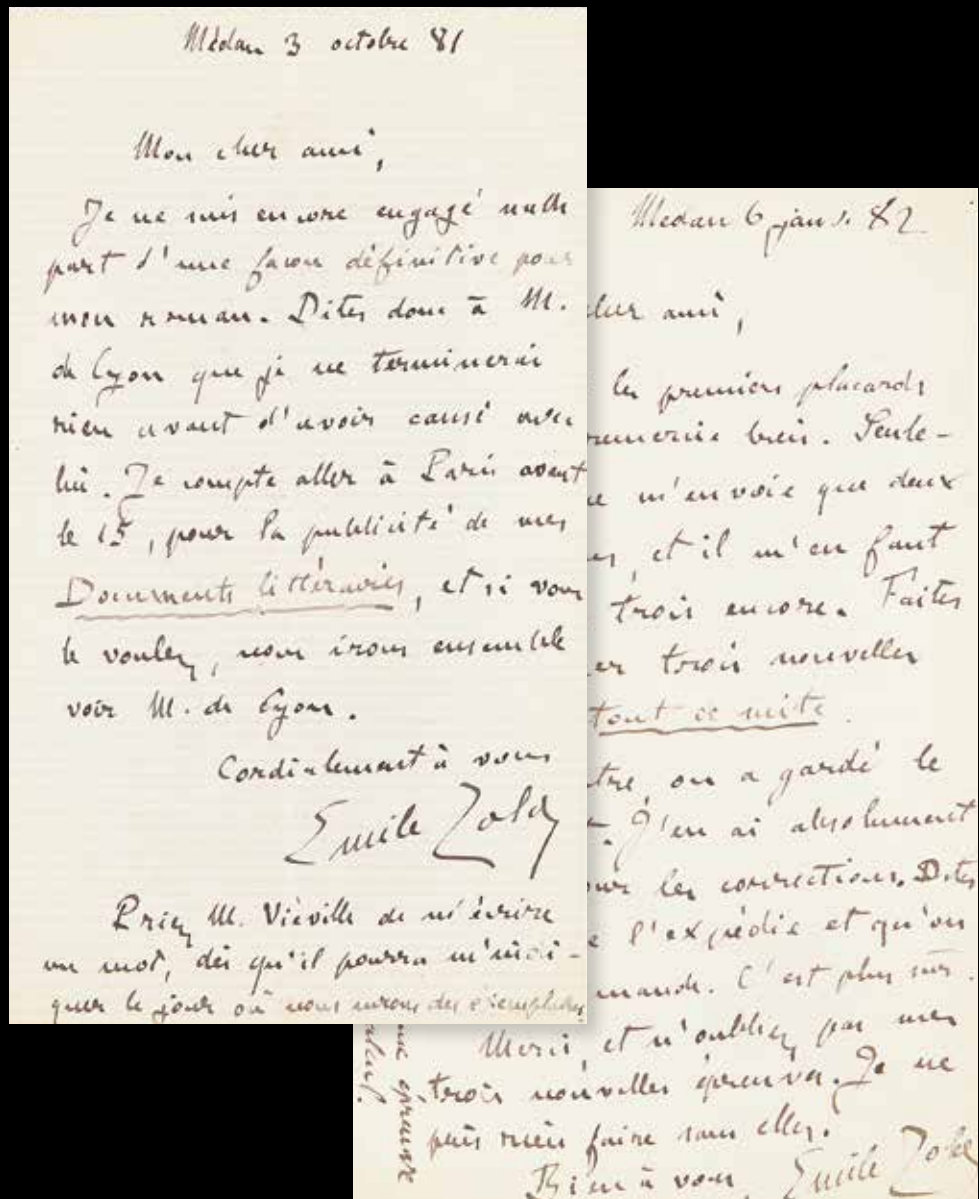 Médan 3 octobre 81
Mon cher ami,
Je ne suis encore engagé nulle
part d'une façon définitive pour
mon roman. Dites donc à M.
de Cyon que je ne terminerai
rien avant d'avoir causé avec
lui. Je compte aller à Paris avant
le 15, pour la publicité de mes
Documents littéraires, et si vous
le voulez, nous irons ensemble
voir M. de Cyon.
Cordialement à vous
Emile Zola
Priez M. Viéville de m'écrire
un mot, dès qu'il pourra m'indi-
quer le jour où nous aurons des exemplaires
Médan 6 janv. 82
cher ami,
les premiers placards
bien. Seule-
m'envoie que deux
et il m'en faut
trois encore. Faites
trois nouvelles
tout de suite.
on a gardé le
J'en ai absolument
les corrections. Dites
l'expédie et qu'on
C'est plus sûr.
Merci, et n'oubliez pas mes
trois nouvelles épreuves. Je ne
puis rien faire sans elles.
Bien à vous
Emile Zola
épreuve